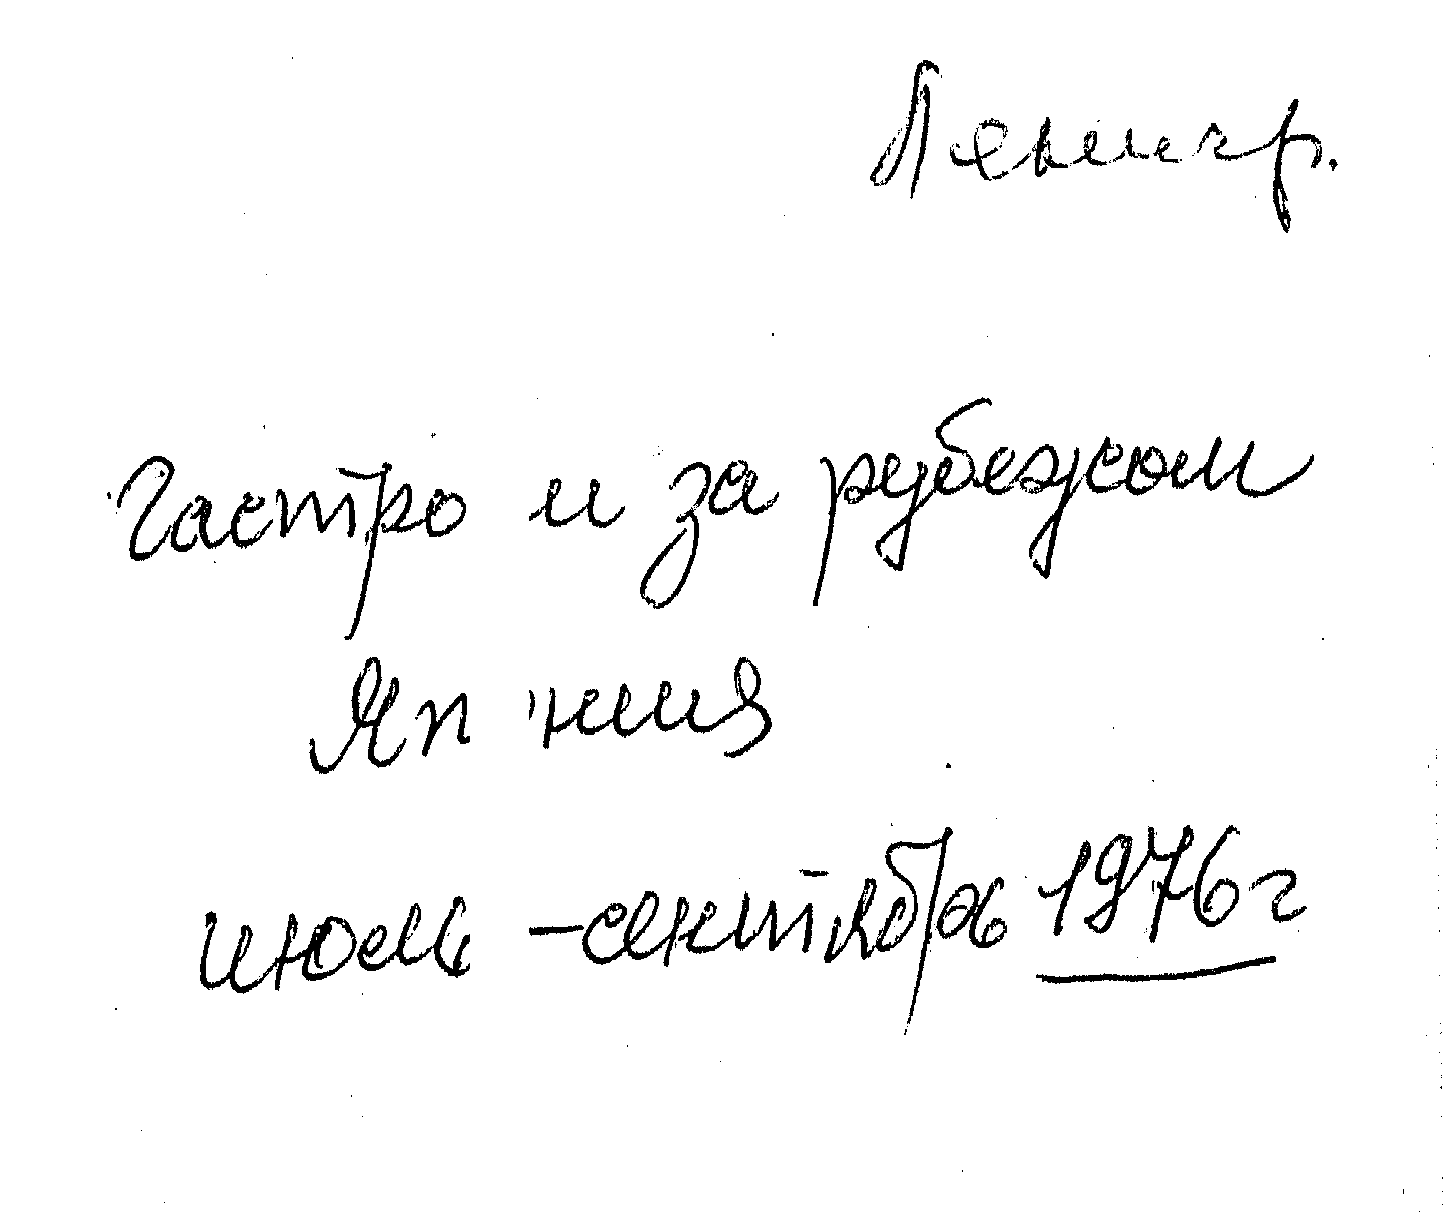 Ленингр.
Гастро и за рубежом
Яп ния
июль - сентябрь 1976 г